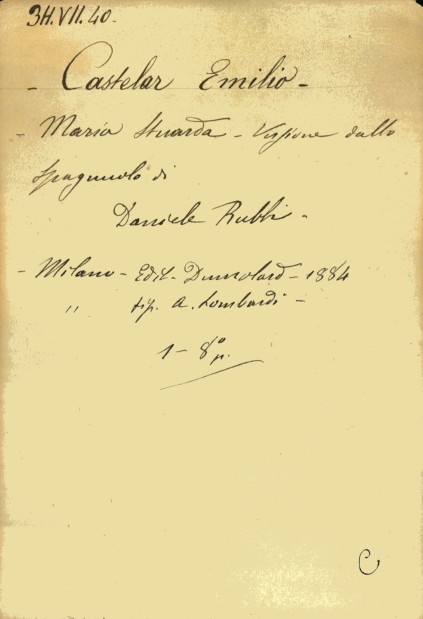 3H.VII.40.
- Castelar Emilio -
- Maria Stuarda - Versione dallo
Spagnuolo di
Daniele Rubbi -
- Milano - Edit. Dumolard - 1884
" tip. A. Lombardi -
1 - 8° p.
C